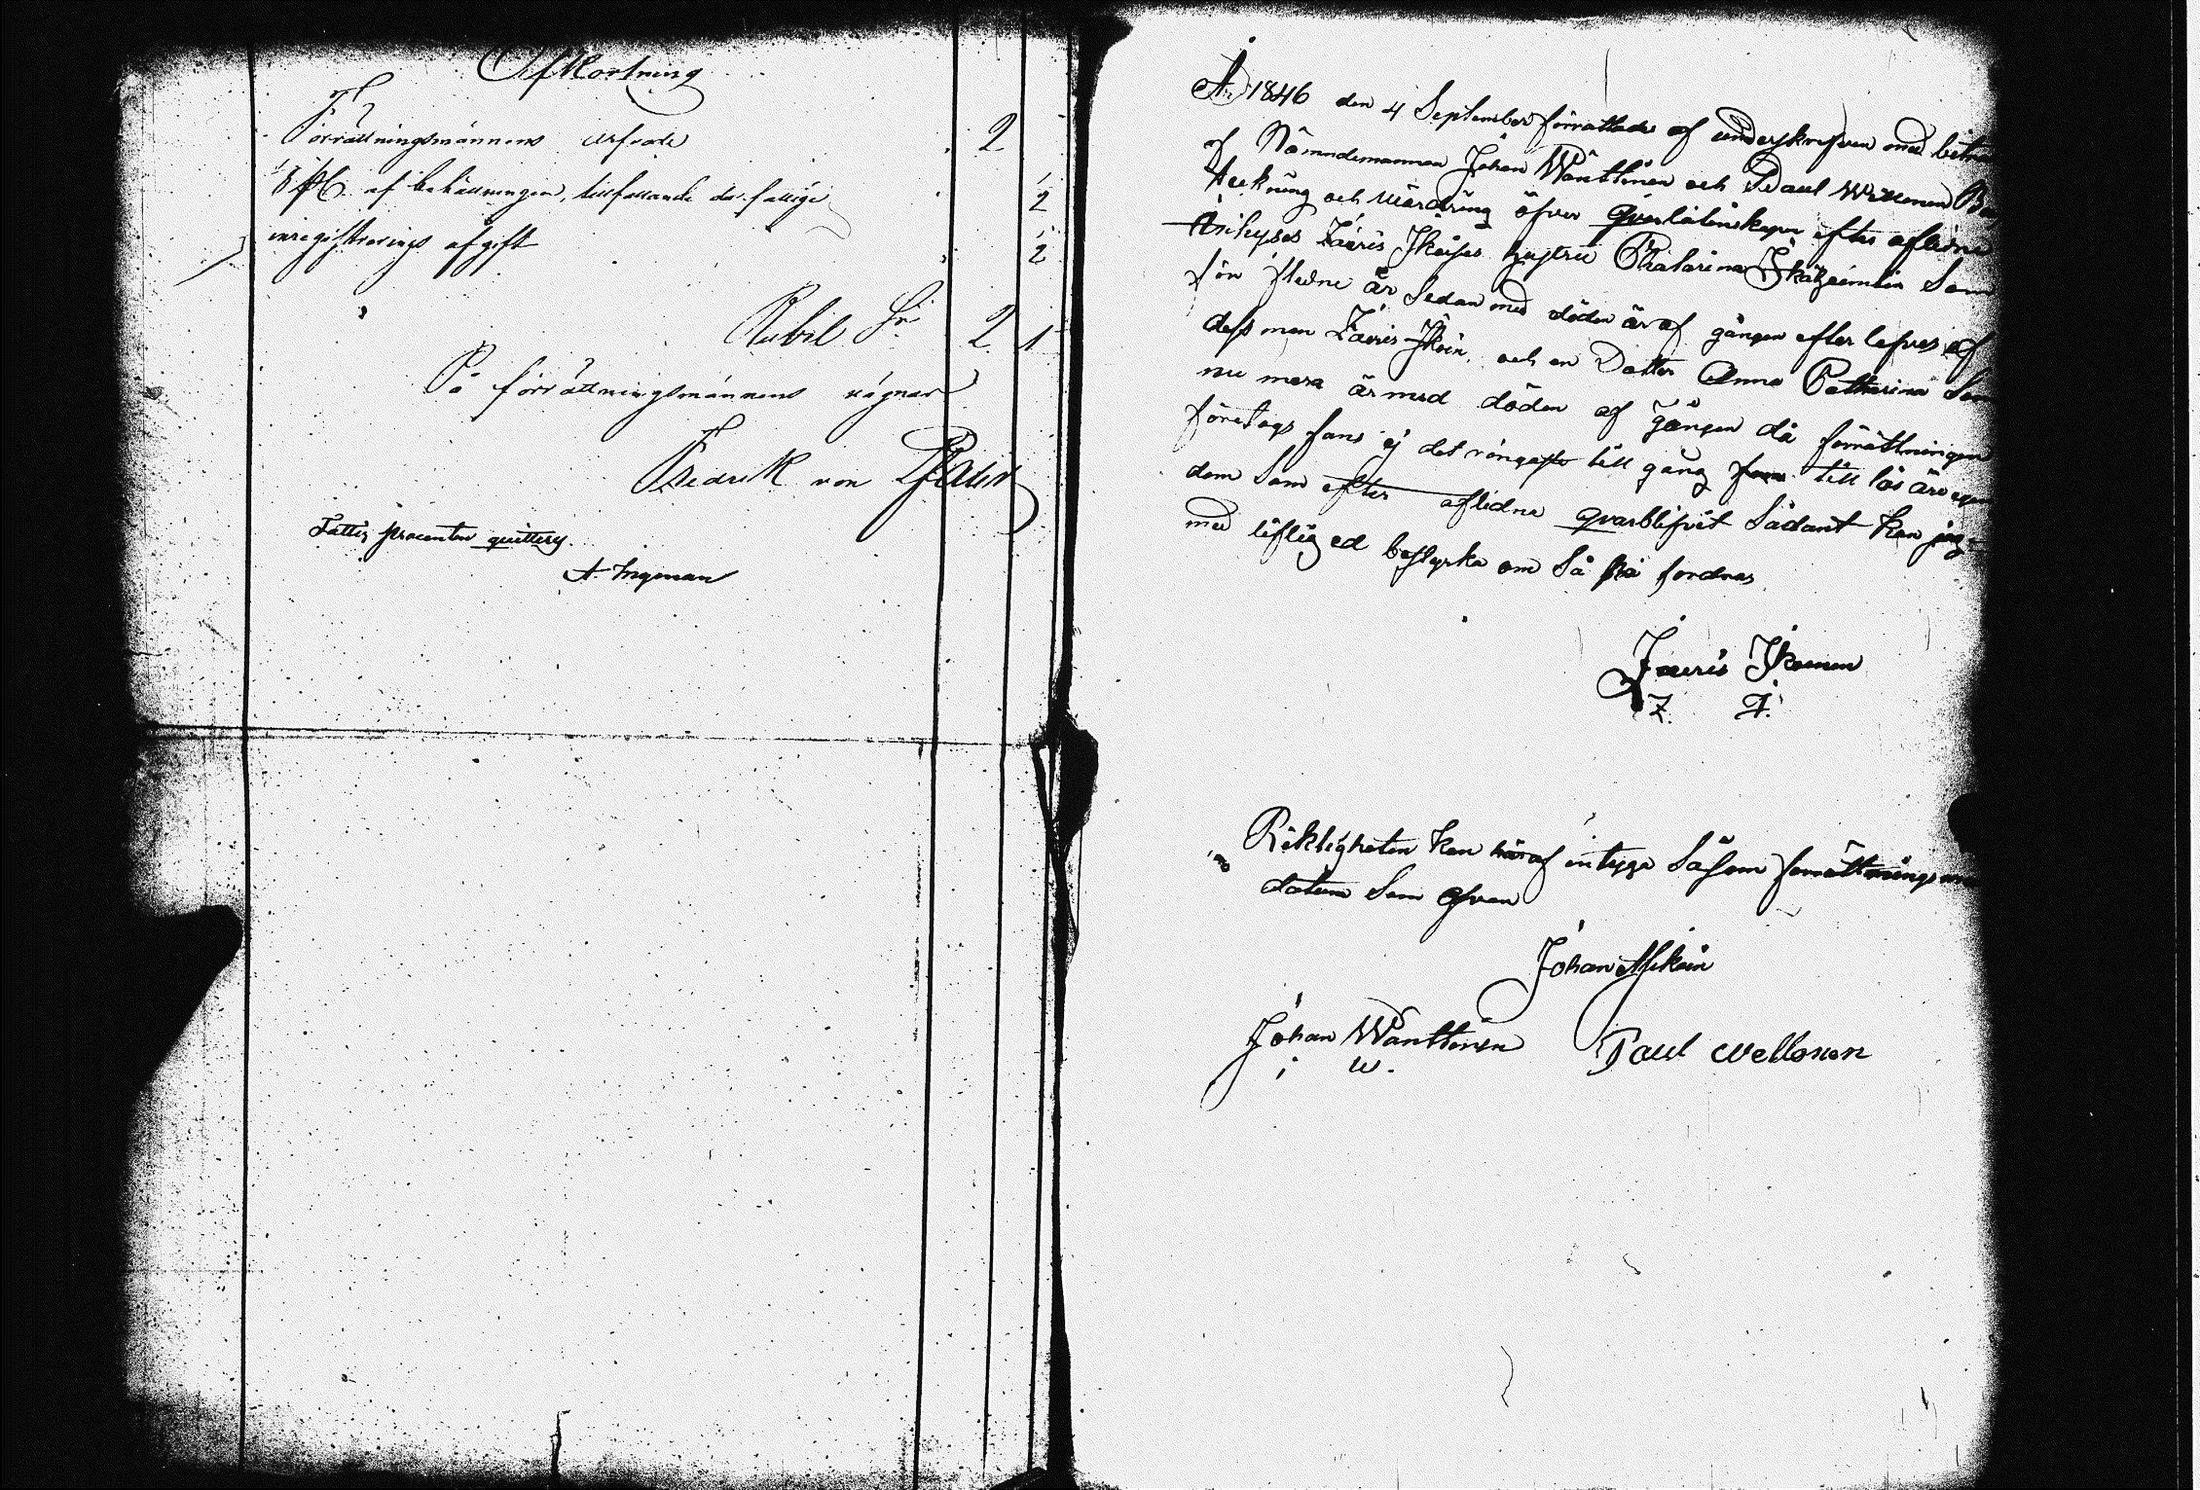 Afkortning
Förrättningsmännens arfvode 2
1/8 pC af behållningen, tillfallande de fattige 2
inregistrerings afgift 2
Rubel Sr 2 1
På förrättningsmännens vägnar
Fredrik von Pfaler
Fattig procenten quitterg.
A. Ingman
År 1846 den 4 September förrättades af underskrefven med biträ
af Nämndemannen Johan Wänttinen och Paul Wellonen Bou
teckning och värdring öfver qvarlåtenskapen efter aflidne
Zavris hustru Chatarina Som
för fledne år Sedan med döden är af gången efter lefves af
dess man Zavris och en Dotter Anna Catharina Som
nu mera är med döden af gången då förrättningen
företogs fans ej det ringaste till gång till lös äro egen
dom Som efter aflidne qvarblifvit Sådant kan jag
med liflig ed bestyrka om Så på fordras
Zavris Ikonen
Riktigheten kan häraf intyga Såsom förrättnings män
datum Som ofvan
Johan
Johan Wänttinen Paul Wellonen
i W.